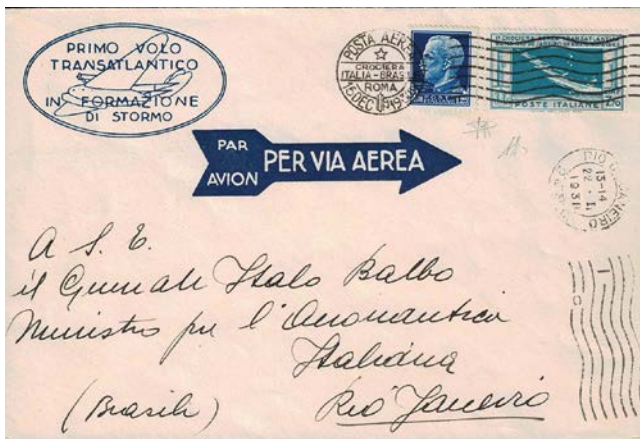 PRIMO VOLO
TRANSATLANTICO
IN FORMAZIONE
DI STORMO
POSTA AEREA
CROCIERA
ITALIA-BRASILE
ROMA
15 DEC 19
POSTE ITALIANE
PAR
AVION
PER VIA AEREA
RIO JANEIRO
13-14
22 . I.
1931
A S. E.
il Generale Italo Balbo
Ministro per l'Aeronautica
Italiana
(Brasile)
Rio Janeiro